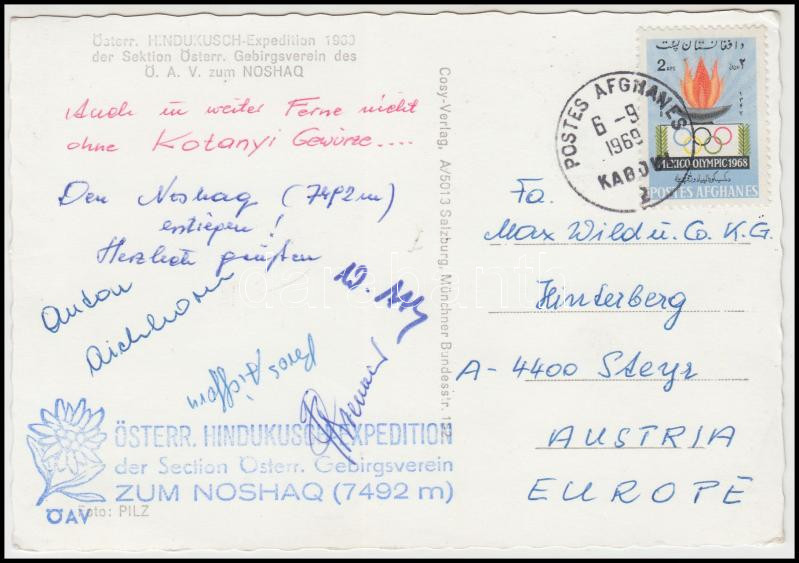 Österr. HINDUKUSCH-Expedition 1969
der Sektion Österr. Gebirgsverein des
Ö. A. V. zum NOSHAQ
Auch in weiter Ferne nicht
ohne Kotanyi Gewürze....
Den Noshaq (7492m)
erstiegen!
Herzlich grüßen
Anton
Aichhorn
ÖSTERR. HINDUKUSCH-EXPEDITION
der Section Österr. Gebirgsverein
ZUM NOSHAQ (7492 m)
ÖAV
Foto: PILZ
Cosy-Verlag, A/5013 Salzburg, Münchner Bundesstr.
POSTES AFGHANES
6-9
1969
KABOUL
2
د افغانستان پست
2 AFS
MEXICO-OLYMPIC 1968
POSTES AFGHANES
Fa.
Max Wild u. Co. K.G.
Hinterberg
A-4400 Steyr
AUSTRIA
EUROPE